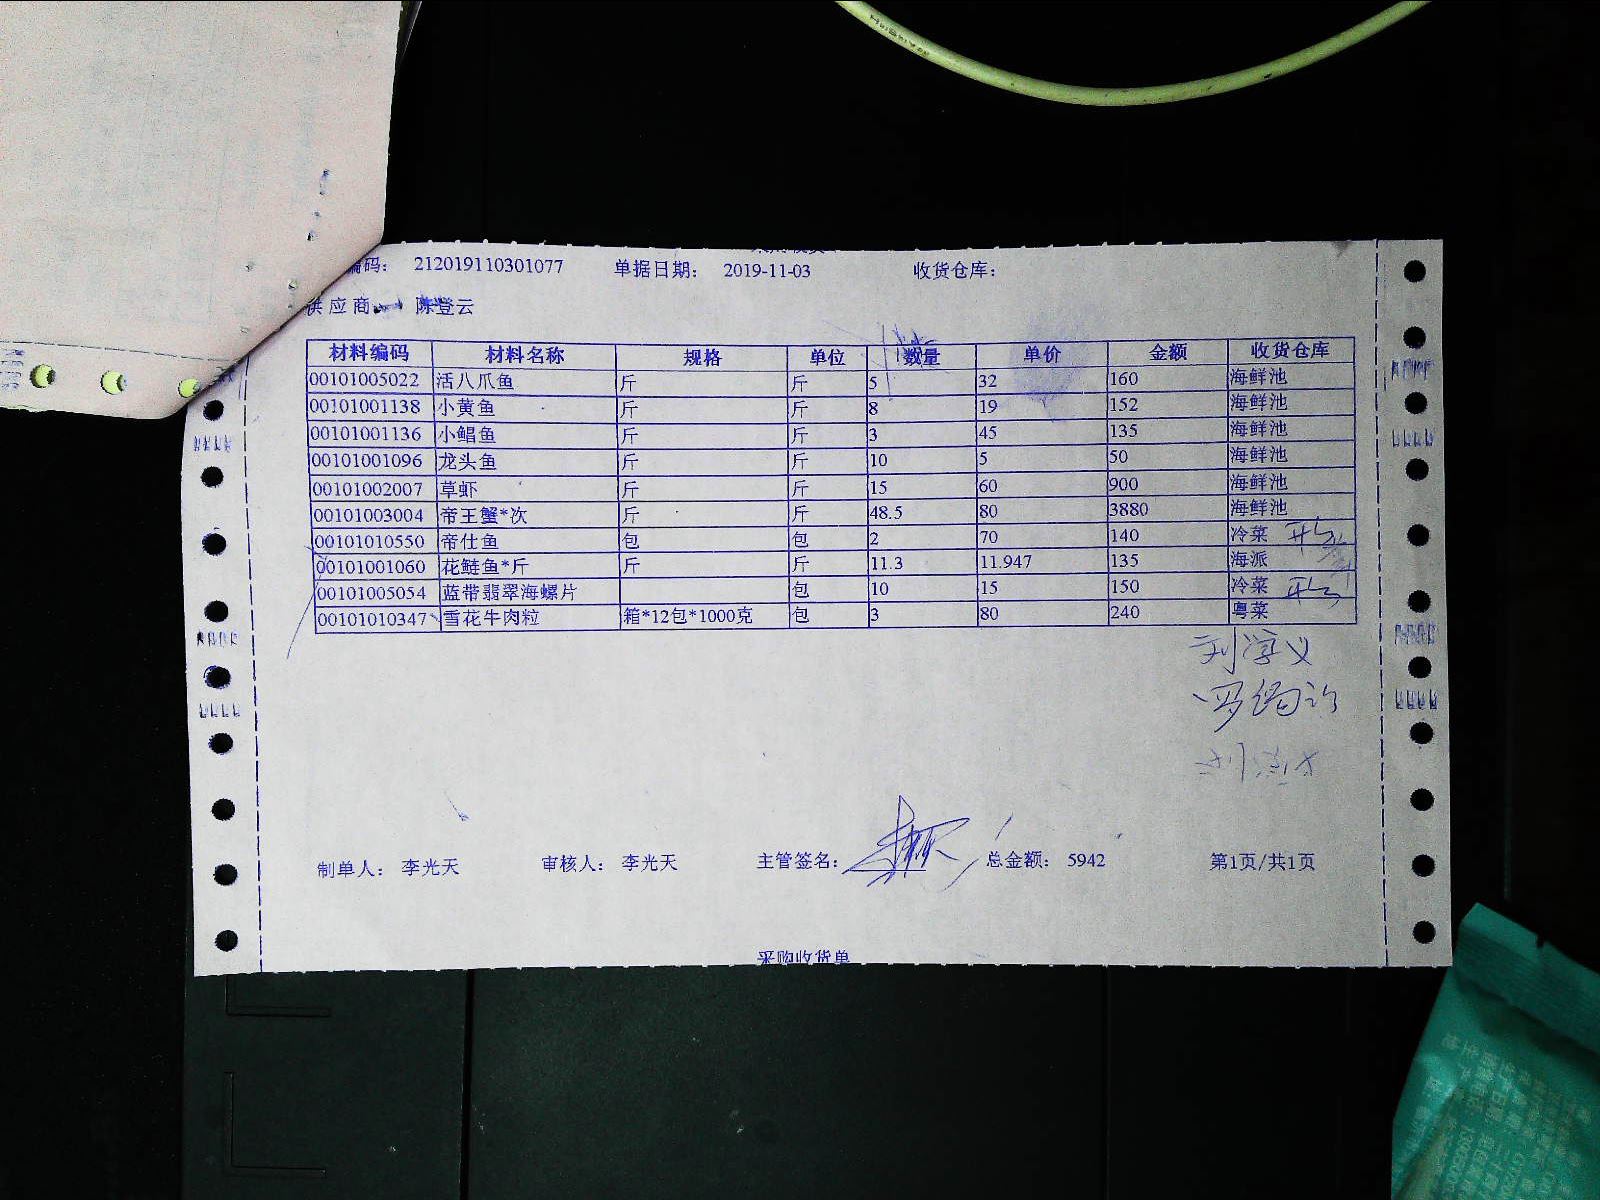 编码： 212019110301077 单据日期： 2019-11-03 收货仓库：
供应商 陈登云
材料编码 材料名称 规格 单位 数量 单价 金额 收货仓库
00101005022 活八爪鱼 斤 斤 5 32 160 海鲜池
00101001138 小黄鱼 斤 斤 8 19 152 海鲜池
00101001136 小鲳鱼 斤 斤 3 45 135 海鲜池
00101001096 龙头鱼 斤 斤 10 5 50 海鲜池
00101002007 草虾 斤 斤 15 60 900 海鲜池
00101003004 帝王蟹*次 斤 斤 48.5 80 3880 海鲜池
00101010550 帝仕鱼 包 包 2 70 140 冷菜
00101001060 花鲢鱼*斤 斤 斤 11.3 11.947 135 海派
00101005054 蓝带翡翠海螺片 包 10 15 150 冷菜
00101010347 雪花牛肉粒 箱*12包*1000克 包 3 80 240 粤菜
制单人： 李光天 审核人： 李光天 主管签名： 总金额： 5942 第1页/共1页
采购收货单